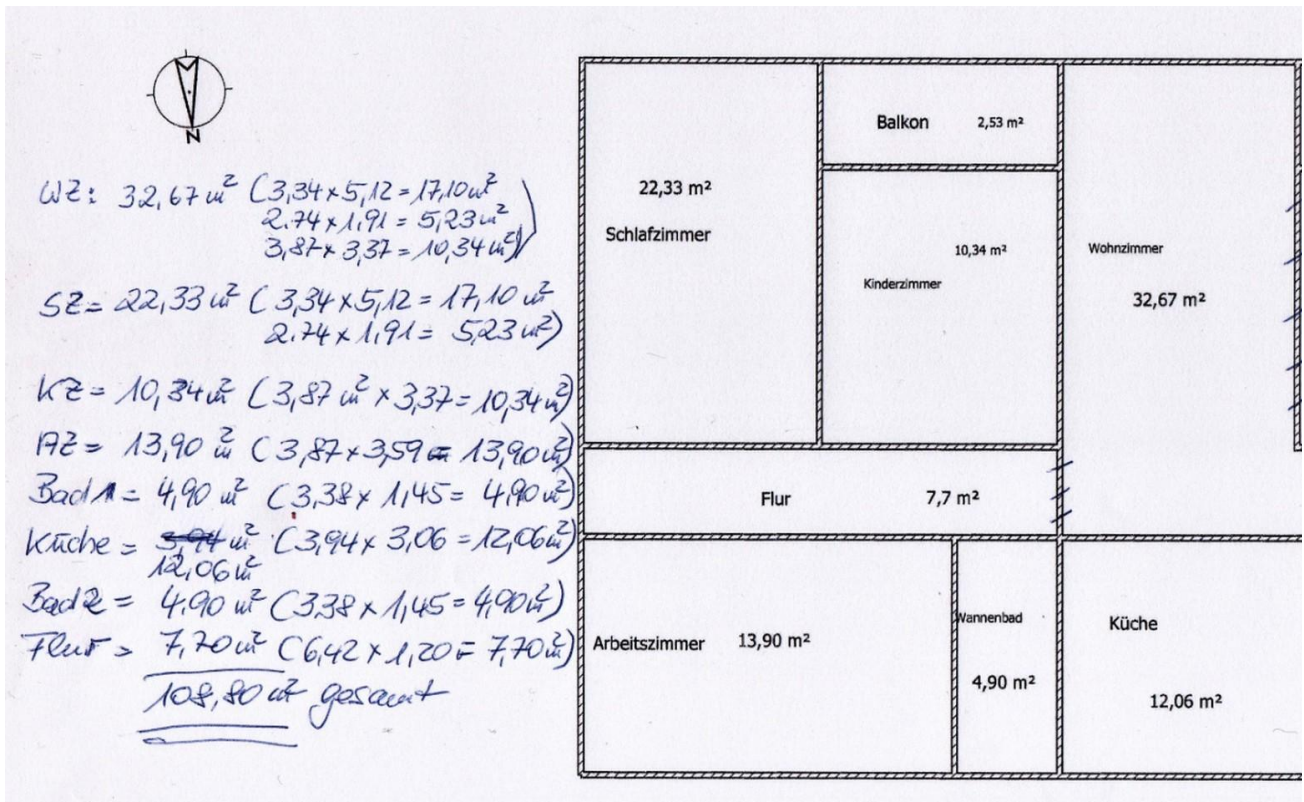 N
WZ: 32,67 m² (3,34 x 5,12 = 17,10 m²
2.74 x 1,91 = 5,23 m²
3,87 x 3,37 = 10,34 m²)
SZ = 22,33 m² (3,34 x 5,12 = 17,10 m²
2.74 x 1,91 = 5,23 m²)
KZ = 10,34 m² (3,87 m² x 3,37 = 10,34 m²)
AZ = 13,90 m² (3,87 x 3,59 = 13,90 m²)
Bad 1 = 4,90 m² (3,38 x 1,45 = 4,90 m²)
Küche = 3,94 m² (3,94 x 3,06 = 12,06 m²)
12,06 m²
Bad 2 = 4.90 m² (3.38 x 1,45 = 4,90 m²)
Flur = 7,70 m² (6,42 x 1,20 = 7,70 m²)
108,80 m² gesamt
Balkon 2,53 m²
22,33 m²
Schlafzimmer
10,34 m²
Kinderzimmer
Wohnzimmer
32,67 m²
Flur 7,7 m²
Arbeitszimmer 13,90 m²
Wannenbad
4,90 m²
Küche
12,06 m²